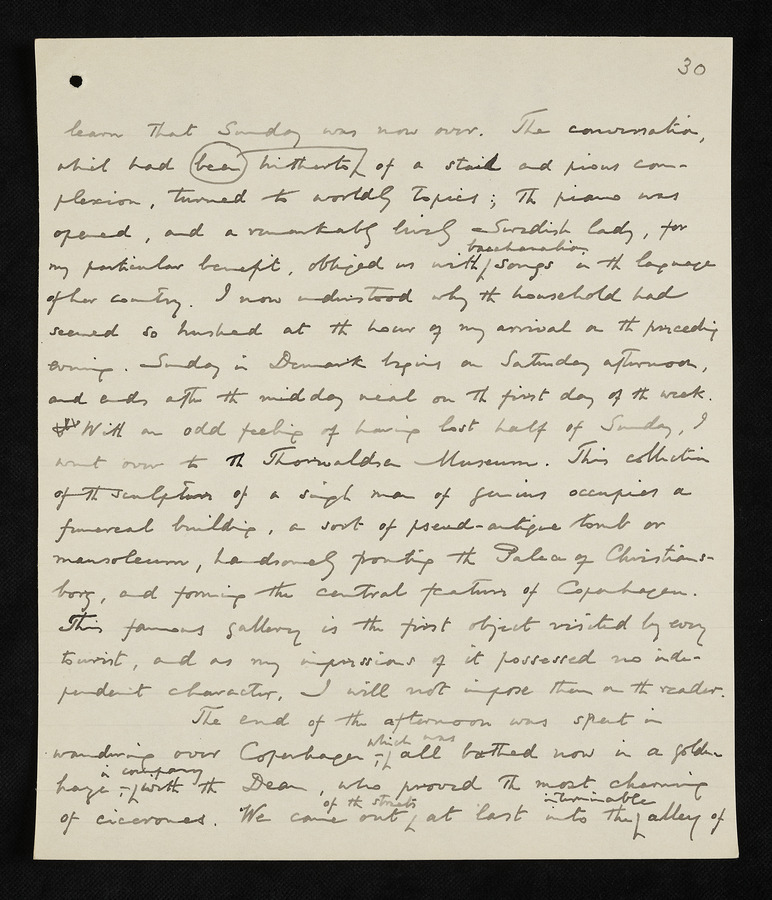 30
learn that Sunday was now over. The conversation,
which had been hitherto of a staid and pious com-
plexion, turned to worldly topics; the piano was
opened, and a remarkably lively Swedish lady, for
bacchanalian
my particular benefit, obliged us with songs in the language
of her country. I now understood why the household had
seemed so hushed at the hour of my arrival on the preceding
evening. Sunday in Denmark begins on Saturday afternoon,
and ends after the midday meal on the first day of the week.
With an odd feeling of having lost half of Sunday, I
went over to the Thorwaldsen Museum. This collection
of the sculptures of a single man of genius occupies a
funereal building, a sort of pseudo-antique tomb or
mausoleum, handsomely fronting the Palace of Christians-
borg, and forming the central feature of Copenhagen.
This famous gallery is the first object visited by every
tourist, and as my impressions of it possessed no inde-
pendent character, I will not impose them on the reader.
The end of the afternoon was spent in
which was
wandering over Copenhagen, all bathed now in a golden
in company
haze, with the Dean, who proved the most charming
of the streets interminable
of cicerones. We came out at last into the alley of